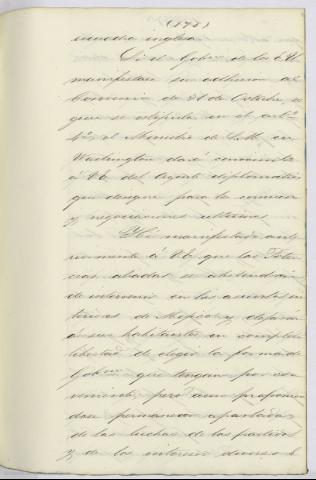 (178)
escuadra inglesa.
Si el Gobno de los E.U.
manifestara su adhesion al
Convenio de 31 de Octubre, se-
gun se estipula en el arto
4o, el Ministro de S.M. en
Washington dará conocimto
á V.E. del Agente diplomatico
que designe para la
y negociaciones ulteriores.
He manifestado ante-
riormente á V.E. que las Poten-
cias aliadas se abstendrán
de intervenir en los asuntos in-
teriores de Mejico y dejarán
á sus habitantes en completa
libertad de elegir la forma de
Gobierno que tengan por con-
veniente; pero aun proponien-
dose permanecer apartadas
de las luchas de los partidos
y de los intereses diversos é